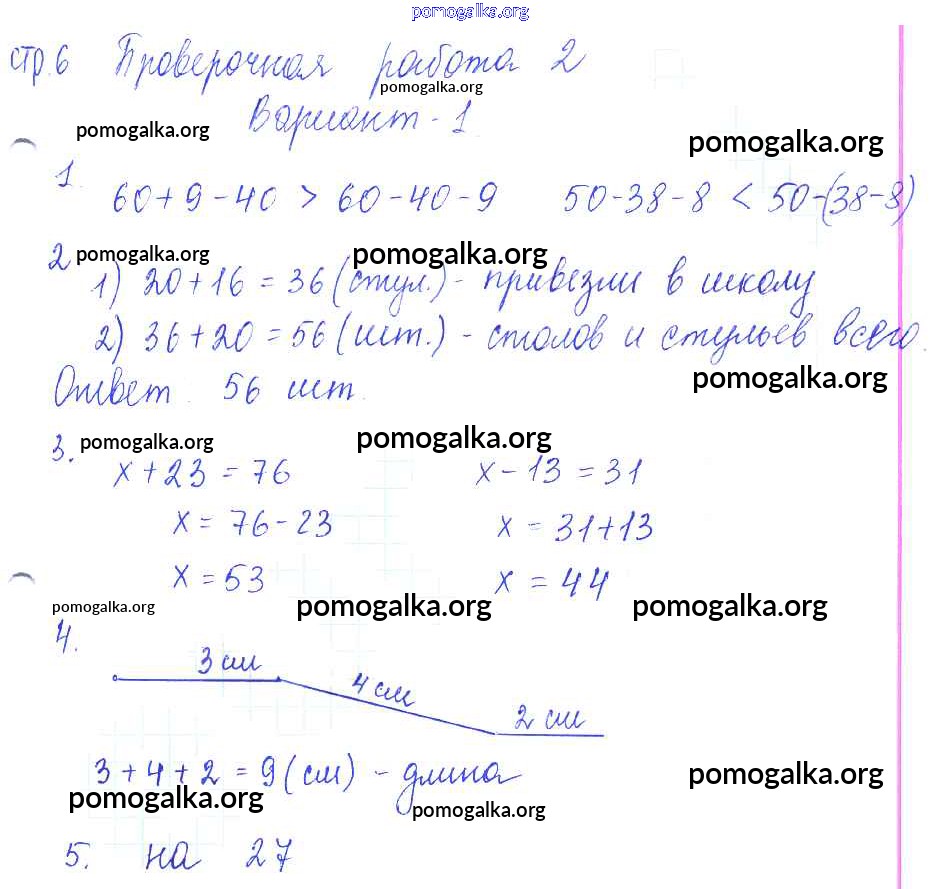 pomogalka.org
стр.6 Проверочная работа 2
pomogalka.org
Вариант - 1
pomogalka.org
pomogalka.org
1.
60+9-40 > 60-40-9 50-38-8 < 50-(38-8)
2
pomogalka.org pomogalka.org
1) 20+16=36 (стул.) - привезли в школу
2) 36+20=56 (шт.) - столов и стульев всего.
Ответ. 56 шт.
pomogalka.org
3. pomogalka.org pomogalka.org
x+23=76 x-13=31
x=76-23 x=31+13
x=53 x=44
pomogalka.org pomogalka.org pomogalka.org
4.
3 см
4 см
2 см
3+4+2=9(см) - длина
pomogalka.org
pomogalka.org pomogalka.org
5. на 27